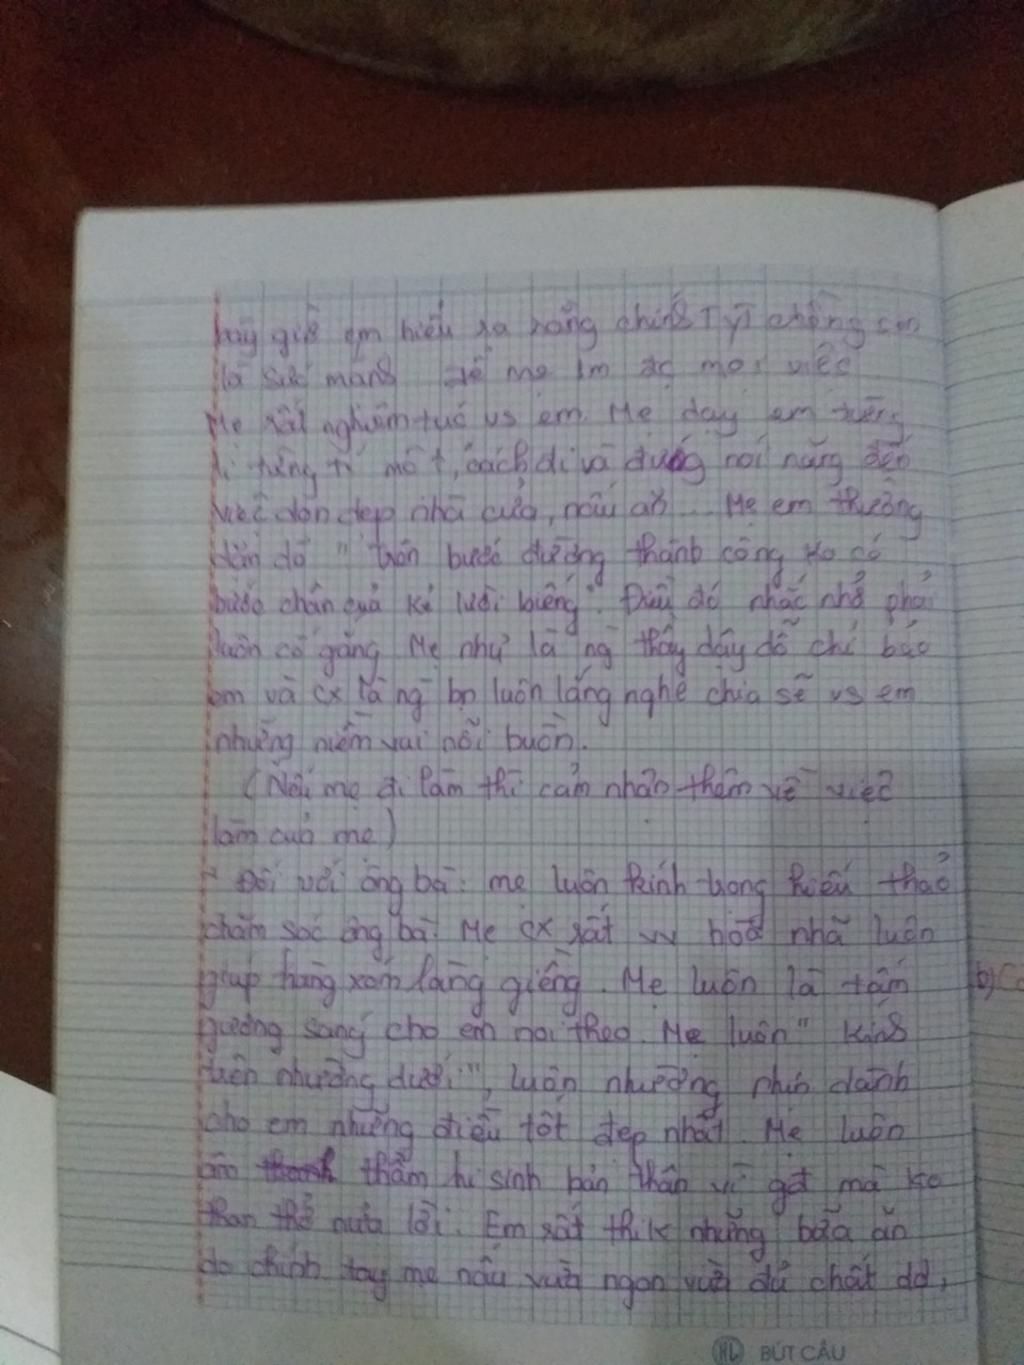 bây giờ em hiểu ra rằng chính TY chồng con
là sức mạnh để mẹ lm đc mọi việc
Mẹ rất nghiêm túc vs em. Mẹ dạy em từng
li từng tí một, cách đi và đứng nói năng đến
việc dọn dẹp nhà cửa, nấu ăn. Mẹ em thường
dặn dò " trên bước đường thành công ko có
bước chân của kẻ lười biếng". Điều đó nhắc nhở phải
luôn cố gắng Mẹ như là ng thầy dậy dỗ chỉ bảo
em và cx là ng bn luôn lắng nghe chia sẽ vs em
những niềm vui nỗi buồn.
(Nếu mẹ đi làm thì cảm nhận thêm về việc
làm của mẹ)
Đối với ông bà: mẹ luôn kính trọng hiếu thảo
chăm sóc ông bà. Mẹ cx rất vv hoà nhã luôn
giúp hàng xóm láng giềng. Mẹ luôn là tấm
gương sáng cho em noi theo. Mẹ luôn " kính
trên nhường dưới", luôn nhường nhịn dành
cho em những điều tốt đẹp nhất. Mẹ luôn
âm thầm hi sinh bản thân vì gđ mà ko
than thở nửa lời. Em rất thik những bữa ăn
do chính tay mẹ nấu vừa ngon vừa đủ chất dd,
b)
HL BÚT CÂU